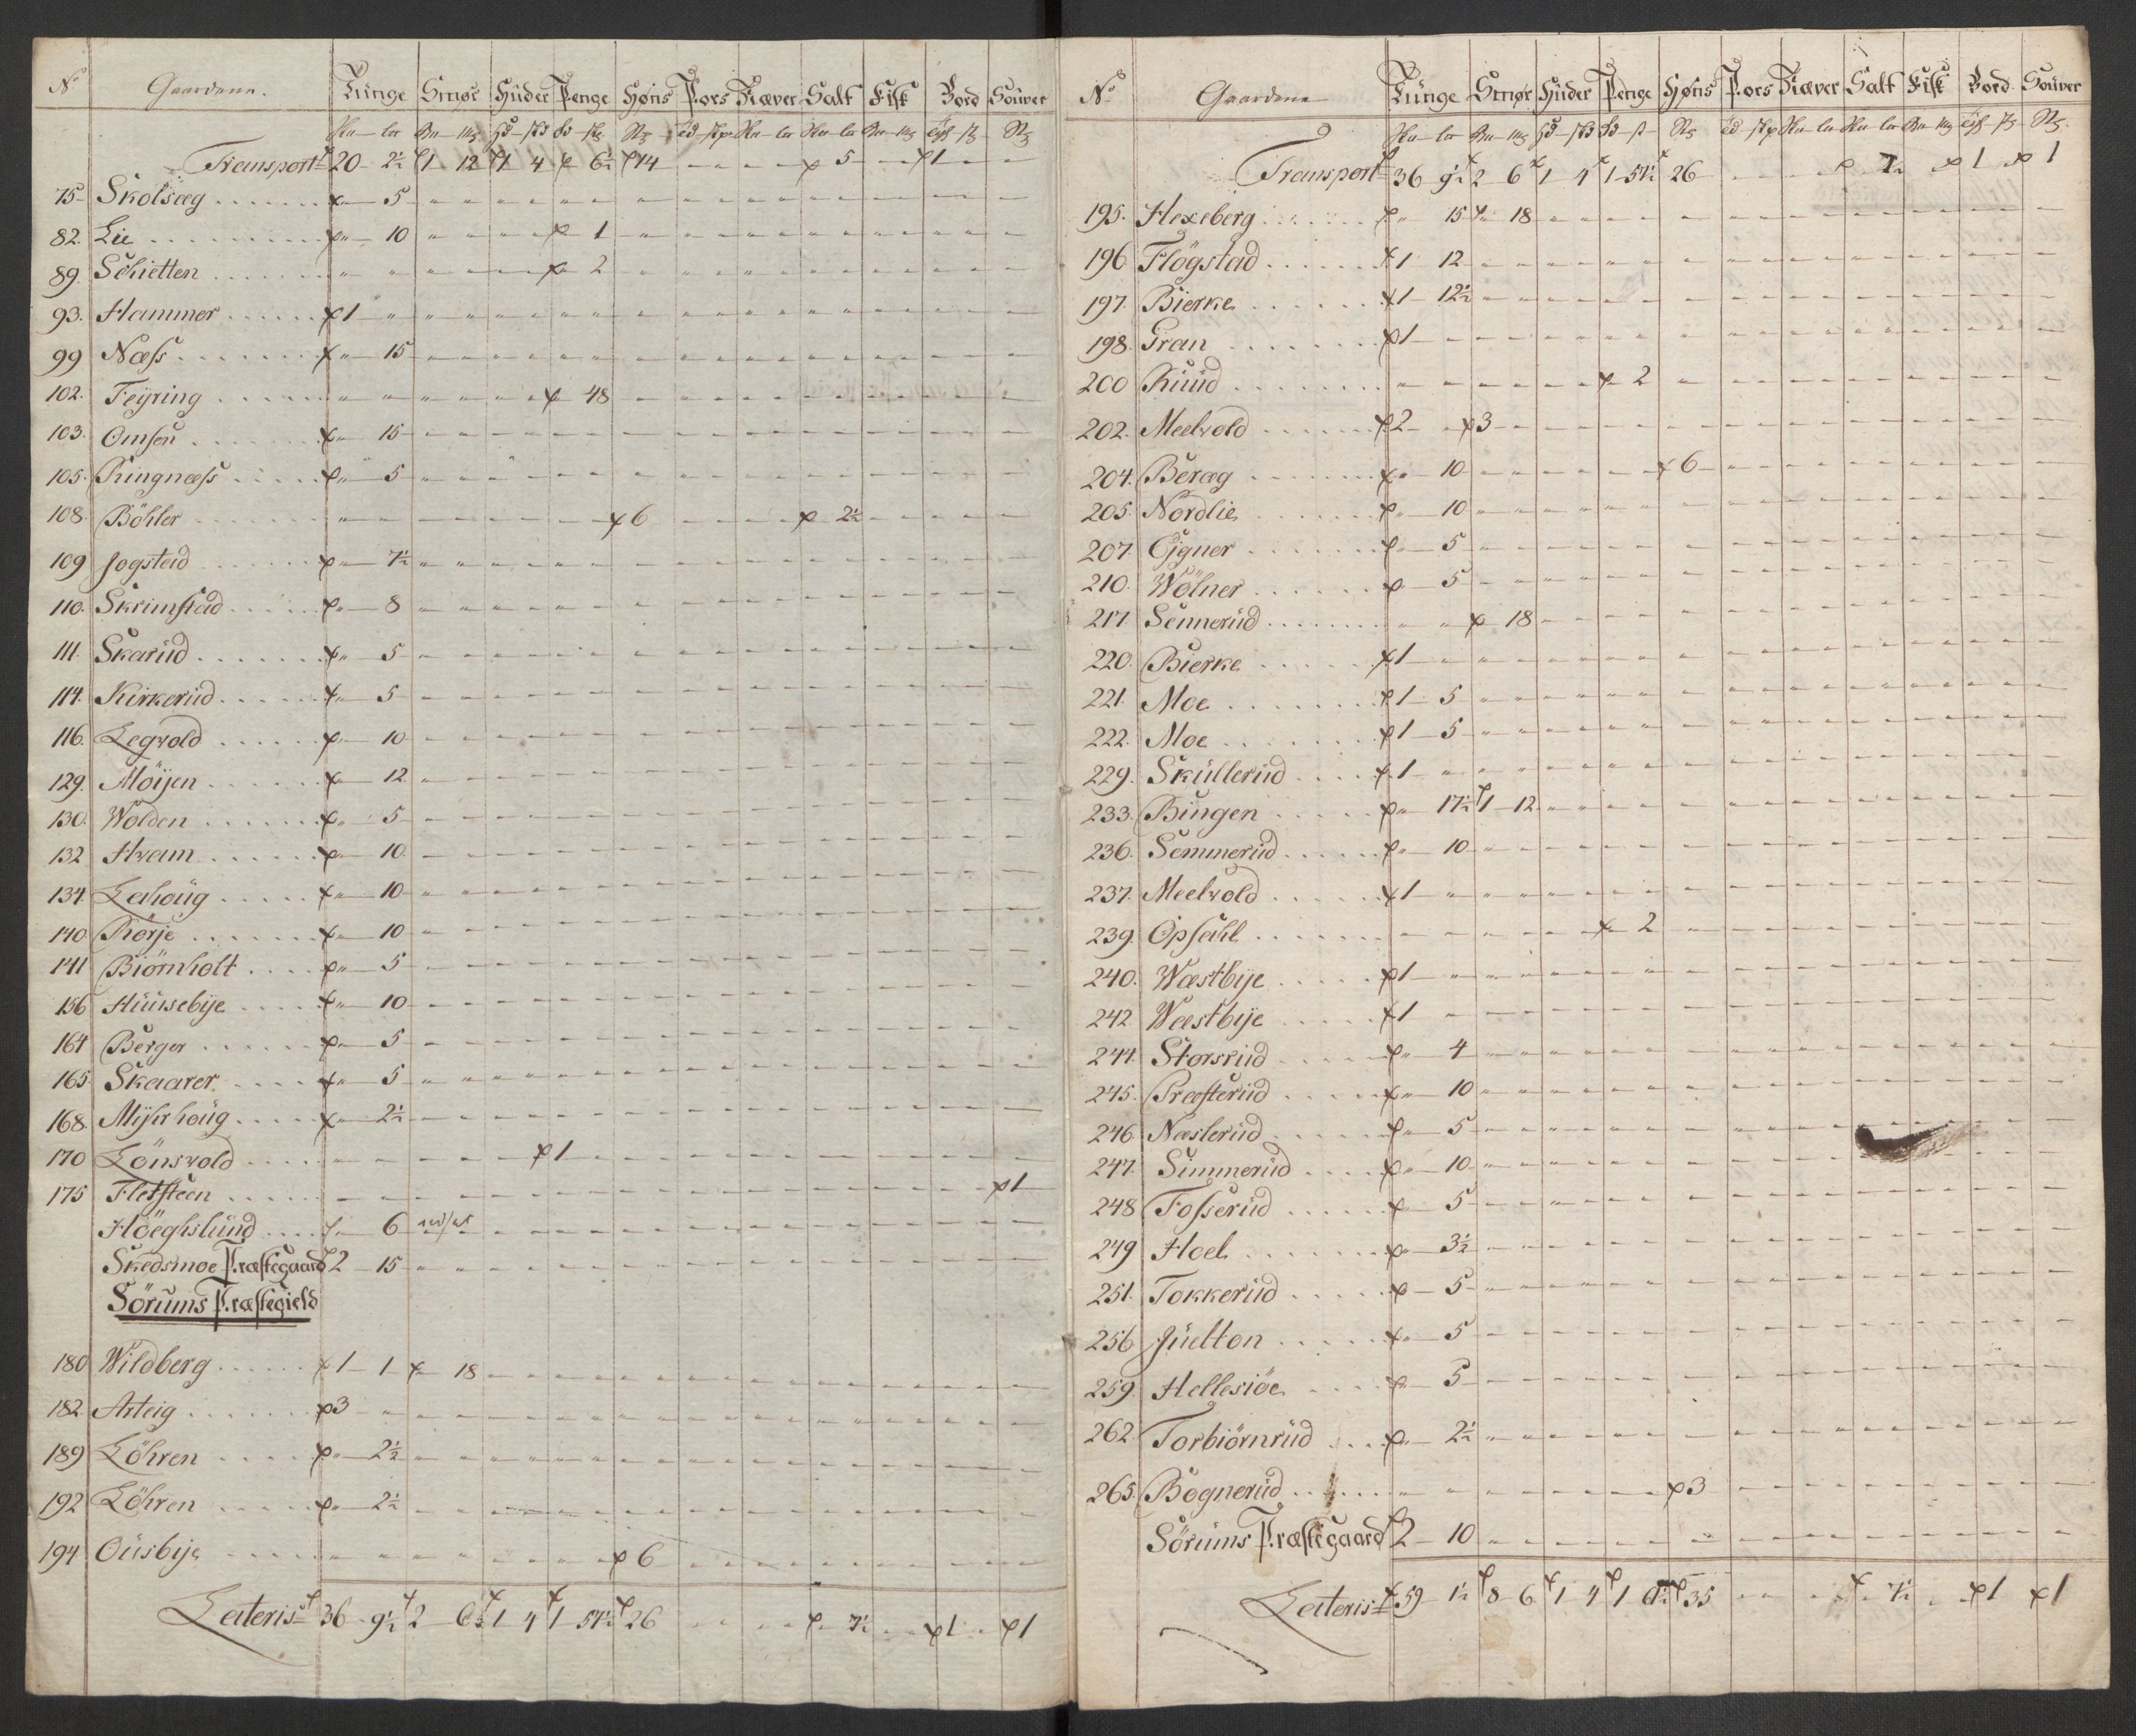 No Gaardene. Tunge Smør Huder Penge Høns Pors Tiæver Salt Fisk Bord Souver
Transport 20 - 2½ 1 - 12 1 4 6½ 14 5 1
75 Skolsæg 5
82. Lie 10 1
89. Schietten 2
93. Hammer 1
99 Næss 15
102. Feyring 48
103. Omsen 15
105. Ringnæss 5
108. Böhler 6 2½
109 Jogstad 7½
110. Skrimstad 8
111. Skarud 5
114. Kirkerud 5
116. Legvold 10
129. Möyen 12
130. Wolden 5
132 Hvam 10
134. Lahoug 10
140 Rörje 10
141 Biörnholt 5
156 Huusebye 10
164 Berger 5
165 Skaarer 5
168. Myhrhoug 2½
170 Lönsvold 1
175 Fletsteen 1
Höeghslund 6
Skedsmoe Præstegaard 2 15
Sörums Præstegield
180 Wildberg 1 - 1 18
182. Arteig 3
189 Löhren 2½
192 Löhren 2½
194 Ousbye 6
Lateris 36 - 9½ 2 6 1 4 1 54½ 26 7½ 1 1
No Gaardene Tunge Smør Huder Penge Høns Pors Tiæver Salt Fisk Bord Souver
Transport 36 9½ 2 6 1 4 1 54½ 26 7½ 1 1
195. Hexeberg 15 18
196 Flögstad 1 12
197. Bierke 1 12½
198. Gran 1
200 Ruud 2
202. Meelvold 2 3
204. Beræg 10 6
205. Nordlie 10
207. Egner 5
210. Wölner 5
217. Sennerud 18
220. Bierke 1
221. Moe 1 - 5
222. Moe 1 - 5
229. Skullerud 1
233. Bingen 17½ 1 - 12
236. Semmerud 10
237. Meelvold 1
239. Opsahl 2
240. Wæstbye 1
242. Wæstbye 1
244. Storsrud 4
245. Præsterud 10
246 Næslerud 5
247. Simmerud 10
248 Fosserud 5
249 Hoel 3½
251. Tokkerud 5
256 Juelton 5
259. Hellesiöe 5
262. Torbiörnrud 2½
265. Bognerud 3
Sörums Præstegaard 2 - 10
Lateris 59 1½ 8 - 6 1 4 1 6½ 35 7½ 1 1